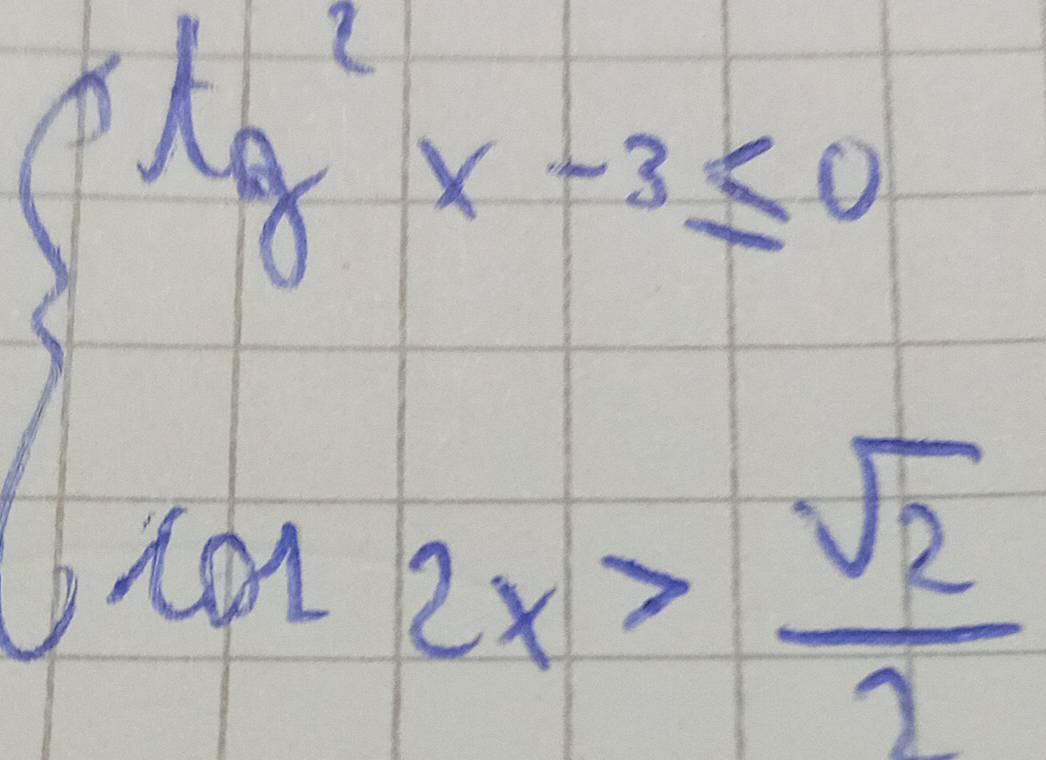 tg² x - 3 ≤ 0
cos 2x > √2/2